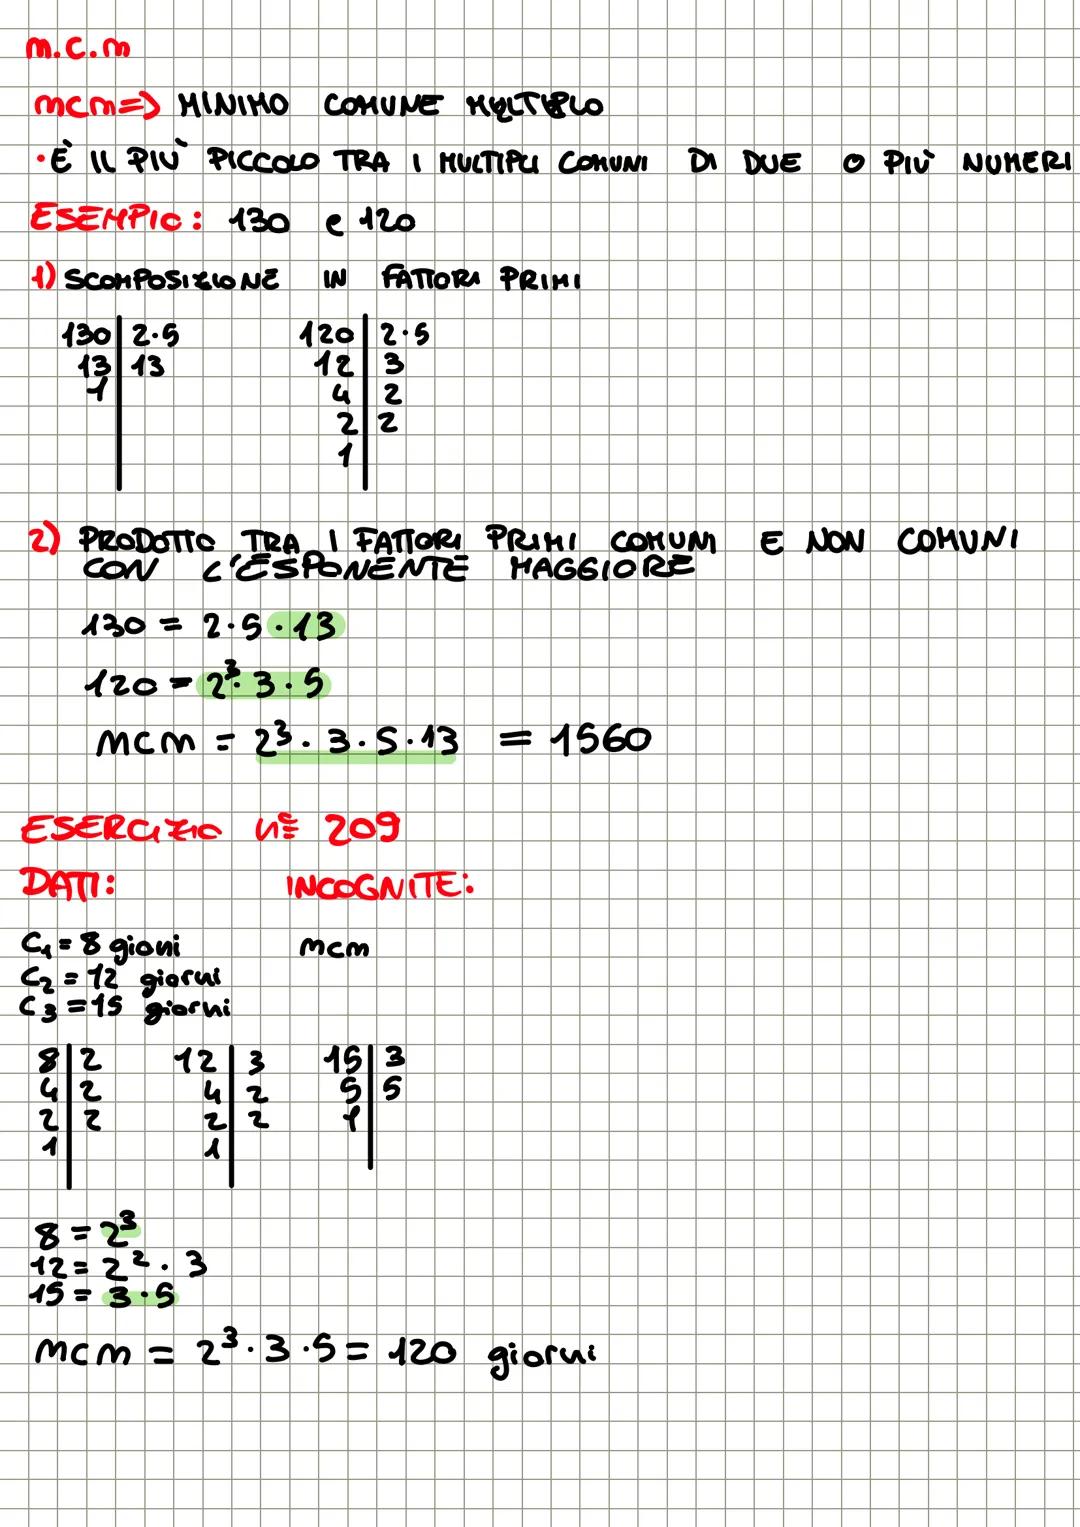 m.c.m
mcm=> MINIMO COMUNE MULTIPLO
• È IL PIÙ PICCOLO TRA I MULTIPLI COMUNI DI DUE O PIÙ NUMERI
ESEMPIO: 130 e 120
1) SCOMPOSIZIONE IN FATTORI PRIMI
130 | 2·5 120 | 2·5
13 | 13 12 | 3
1 | 4 | 2
2 | 2
1 |
2) PRODOTTO TRA I FATTORI PRIMI COMUNI E NON COMUNI
CON L'ESPONENTE MAGGIORE
130 = 2·5·13
120 = 2³·3·5
mcm = 2³·3·5·13 = 1560
ESERCIZIO n° 209
DATI: INCOGNITE:
C₁ = 8 gioni mcm
C₂ = 12 giorni
C₃ = 15 giorni
8 | 2 12 | 3 15 | 3
4 | 2 4 | 2 5 | 5
2 | 2 2 | 2 1 |
1 | 1 |
8 = 2³
12 = 2²·3
15 = 3·5
mcm = 2³·3·5 = 120 giorni